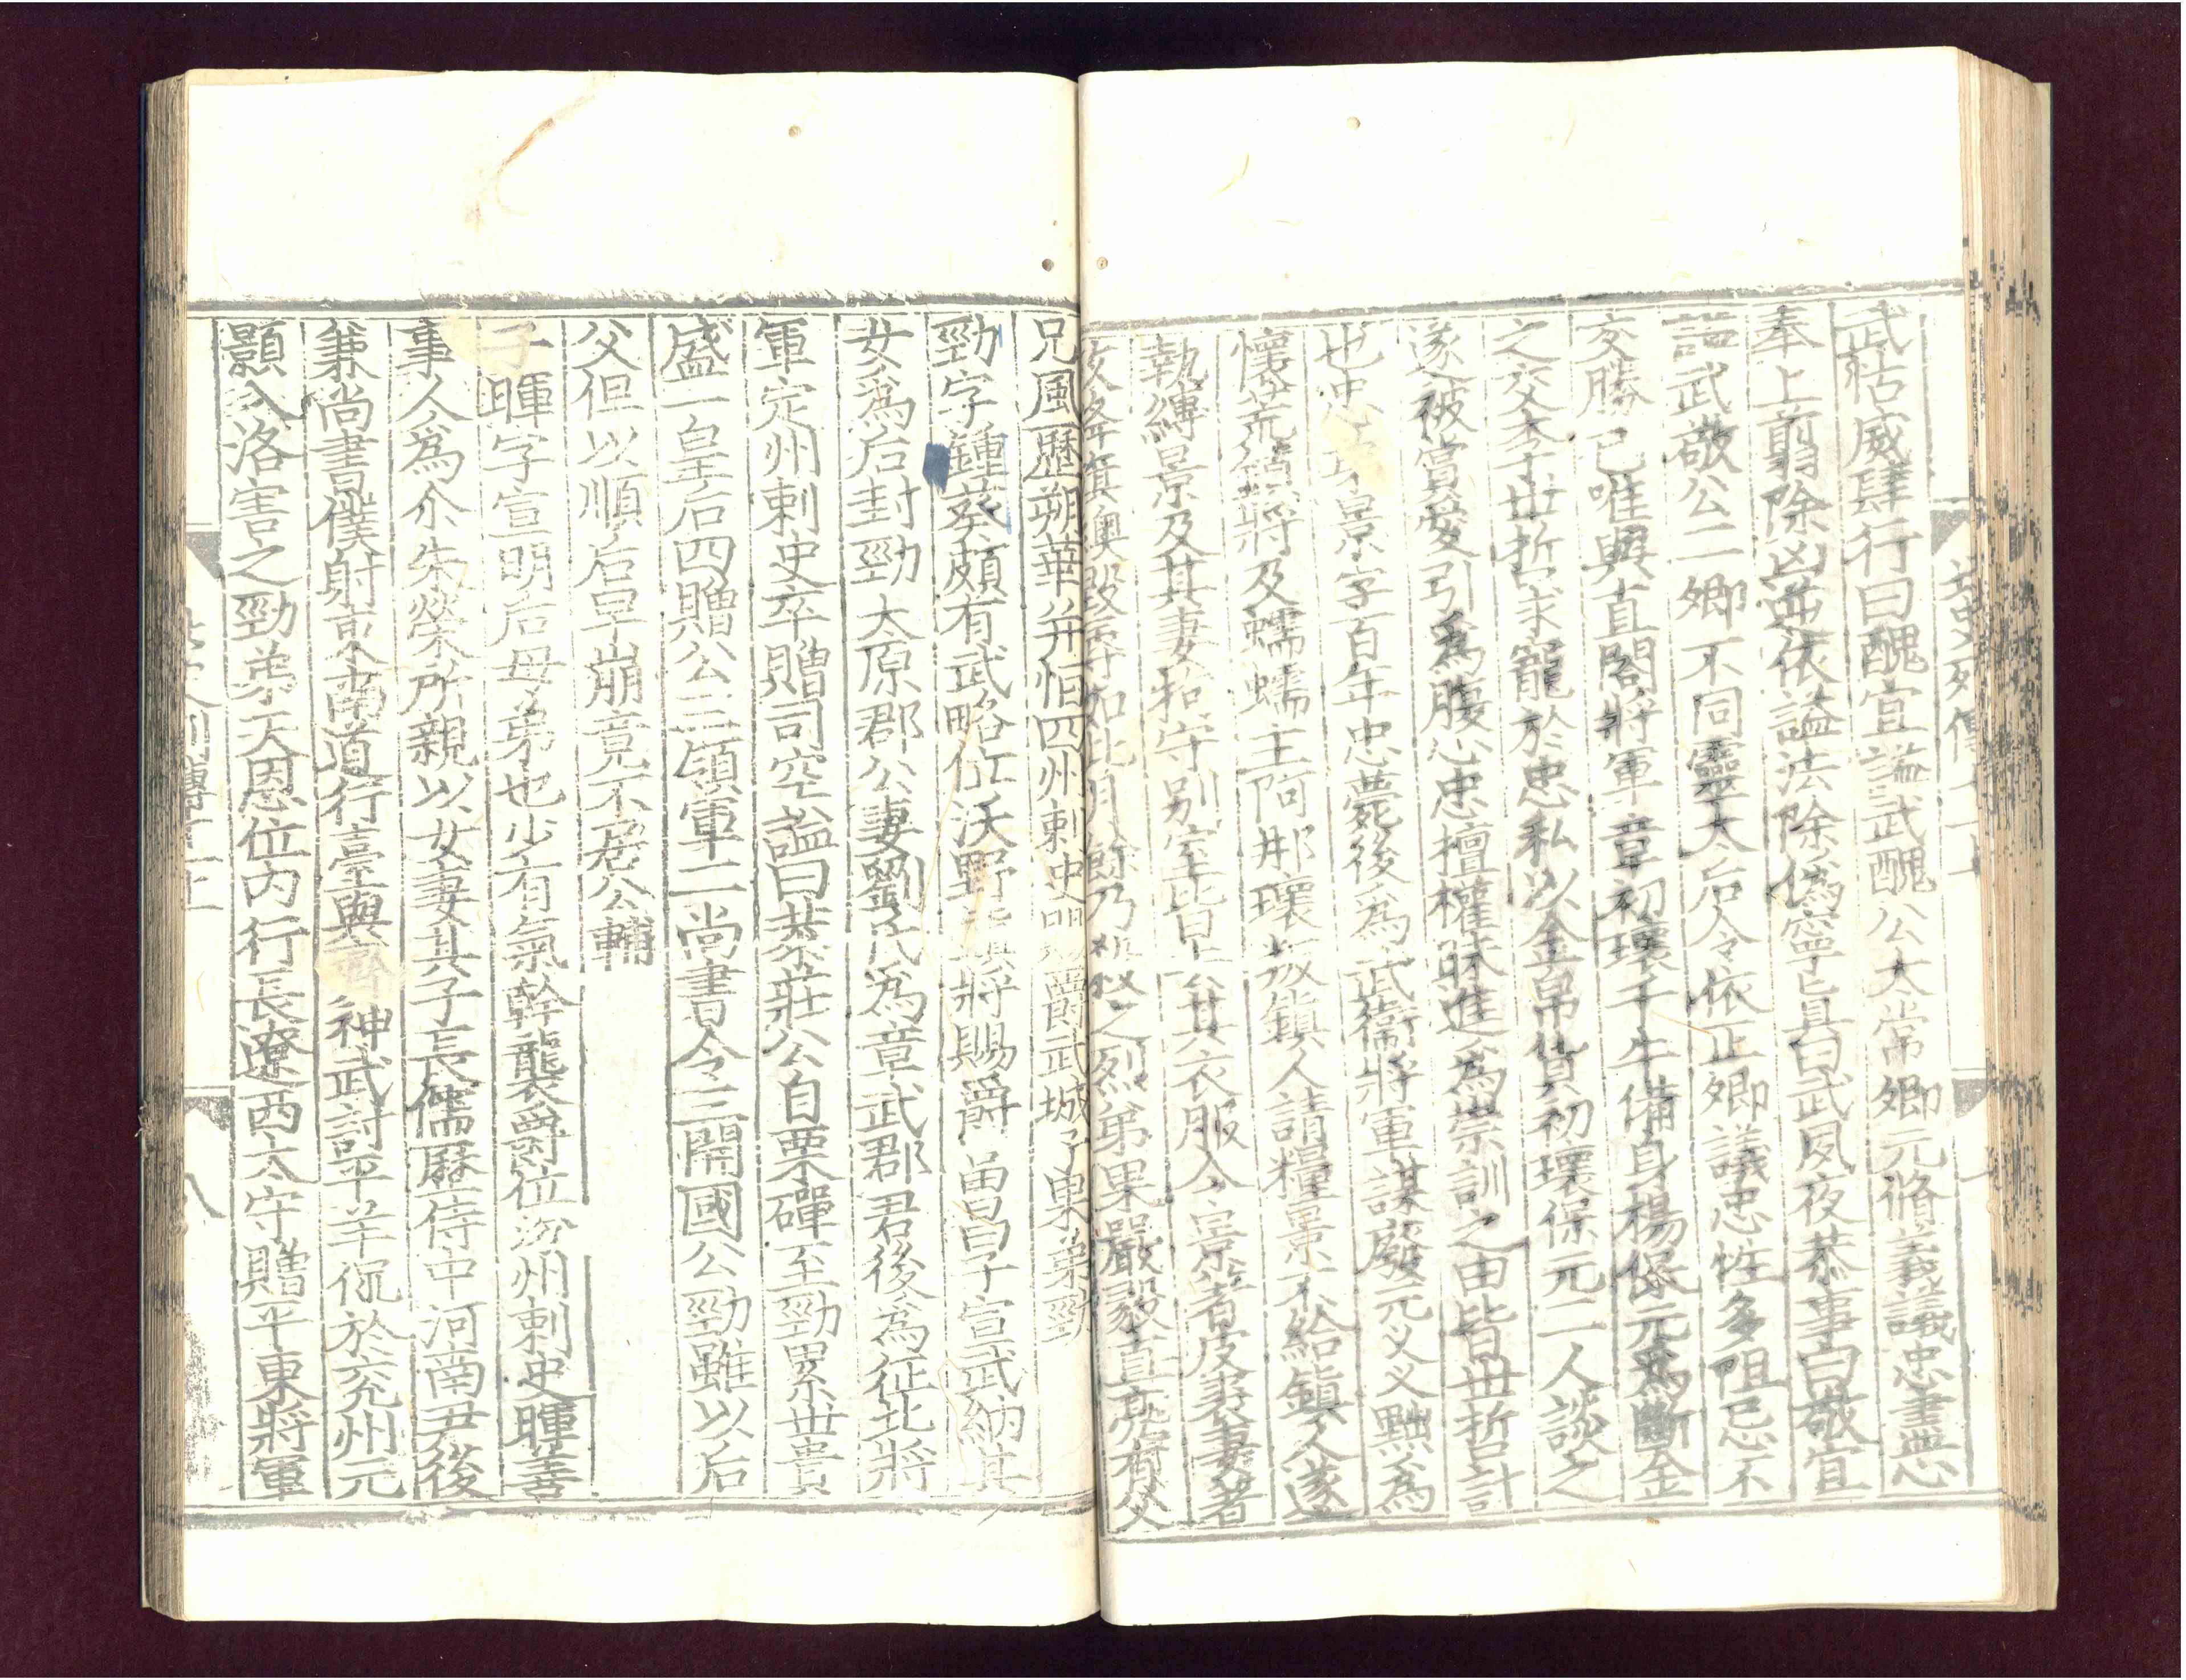 武怙威肆行曰醜宜謚武醜公太常卿元脩義議忠盡忠
奉上翦除凶逆依謚法除偽寧真曰武夙夜恭事曰敬宜
謚武敬公二卿不同靈太后令依正卿議忠性多阻忌不
交勝己唯與直閤將軍章初瓌千牛備身楊保元為斷金
之交李世哲求寵於忠私以金帛貨初瓌保元二人談之
遂被賞愛引為腹心忠擅權昧進為崇訓之由皆世哲計
也忠 景字百年忠薨後為武衛將軍謀廢元义义黜為
懷荒鎮將及蠕蠕主阿那瓌叛鎮人請糧景不給鎮人遂
執縛景及其妻拘守別室皆 其衣服令景著皮裘妻著
故絳旗襖毀辱如此月餘乃殺之烈弟果嚴毅直亮有父
兄風歷朔華并恒四州刺史 爵武城子果弟勁
勁字鍾葵頗有武略位沃野鎮將賜爵富昌子宣武納其
女為后封勁太原郡公妻劉氏為章武郡君後為征北將
軍定州刺史卒贈司空謚曰恭莊公自栗磾至勁累世貴
盛一皇后四贈公三領軍二尚書令三開國公勁雖以后
父但以順后早崩竟不居公輔
子暉字宣明后母弟也少有氣幹襲爵位汾州刺史暉善
事人為尒朱榮所親以女妻其子長儒歷侍中河南尹後
兼尚書僕射東南道行臺與齊神武討平羊侃於兗州元
顥入洛害之勁弟天恩位內行長遼西太守贈平東將軍